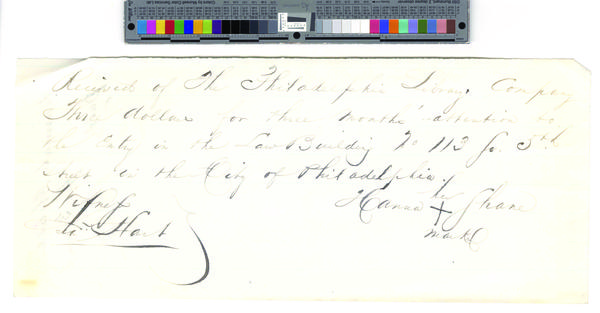 Received of The Philadelphia Library Company
Three dollars for three months' attention to
the Entry in the Law Building No 113 So. 5th
street in the City of Philadelphia.
Witness
Hanna her Shane
mark
Hart